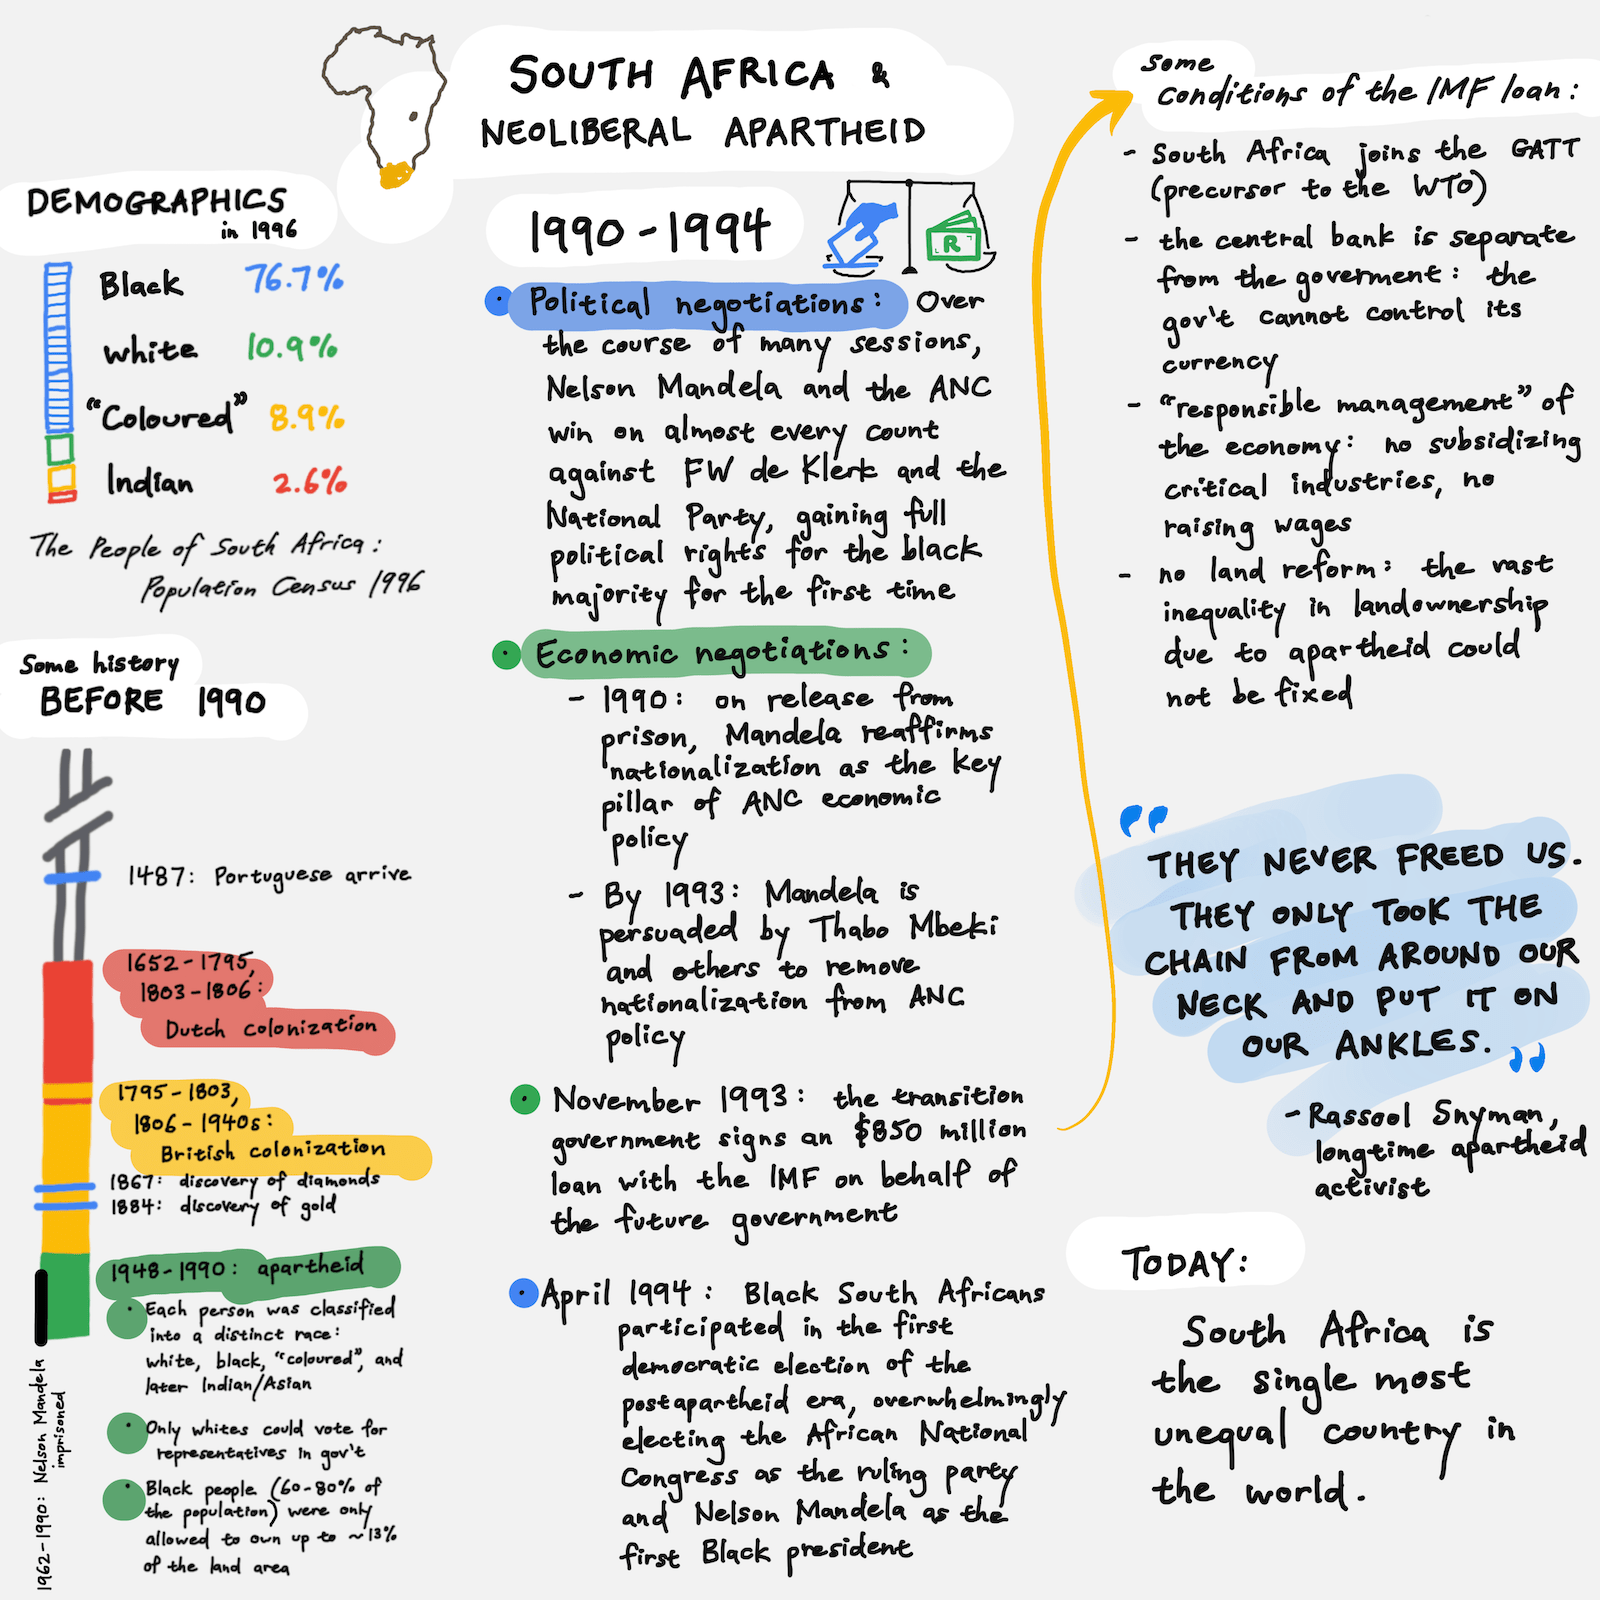 SOUTH AFRICA &
NEOLIBERAL APARTHEID
DEMOGRAPHICS
in 1996
Black 76.7%
white 10.9%
"Coloured" 8.9%
Indian 2.6%
The People of South Africa:
Population Census 1996
Some history
BEFORE 1990
1487: Portuguese arrive
1652-1795,
1803-1806:
Dutch colonization
1795-1803,
1806-1940s:
British colonization
1867: discovery of diamonds
1884: discovery of gold
1948-1990: apartheid
Each person was classified
into a distinct race:
white, black, "coloured", and
later Indian/Asian
Only whites could vote for
representatives in gov't
Black people (60-80% of
the population) were only
allowed to own up to ~13%
of the land area
1962-1990: Nelson Mandela
imprisoned
1990-1994
R
Political negotiations: Over
the course of many sessions,
Nelson Mandela and the ANC
win on almost every count
against FW de Klerk and the
National Party, gaining full
political rights for the black
majority for the first time
Economic negotiations:
- 1990: on release from
prison, Mandela reaffirms
nationalization as the key
pillar of ANC economic
policy
- By 1993: Mandela is
persuaded by Thabo Mbeki
and others to remove
nationalization from ANC
policy
November 1993: the transition
government signs an $850 million
loan with the IMF on behalf of
the future government
April 1994: Black South Africans
participated in the first
democratic election of the
postapartheid era, overwhelmingly
electing the African National
Congress as the ruling party
and Nelson Mandela as the
first Black president
some
conditions of the IMF loan:
- South Africa joins the GATT
(precursor to the WTO)
- the central bank is separate
from the goverment: the
gov't cannot control its
currency
- "responsible management" of
the economy: no subsidizing
critical industries, no
raising wages
- no land reform: the vast
inequality in landownership
due to apartheid could
not be fixed
"THEY NEVER FREED US.
THEY ONLY TOOK THE
CHAIN FROM AROUND OUR
NECK AND PUT IT ON
OUR ANKLES."
- Rassool Snyman,
longtime apartheid
activist
TODAY:
South Africa is
the single most
unequal country in
the world.